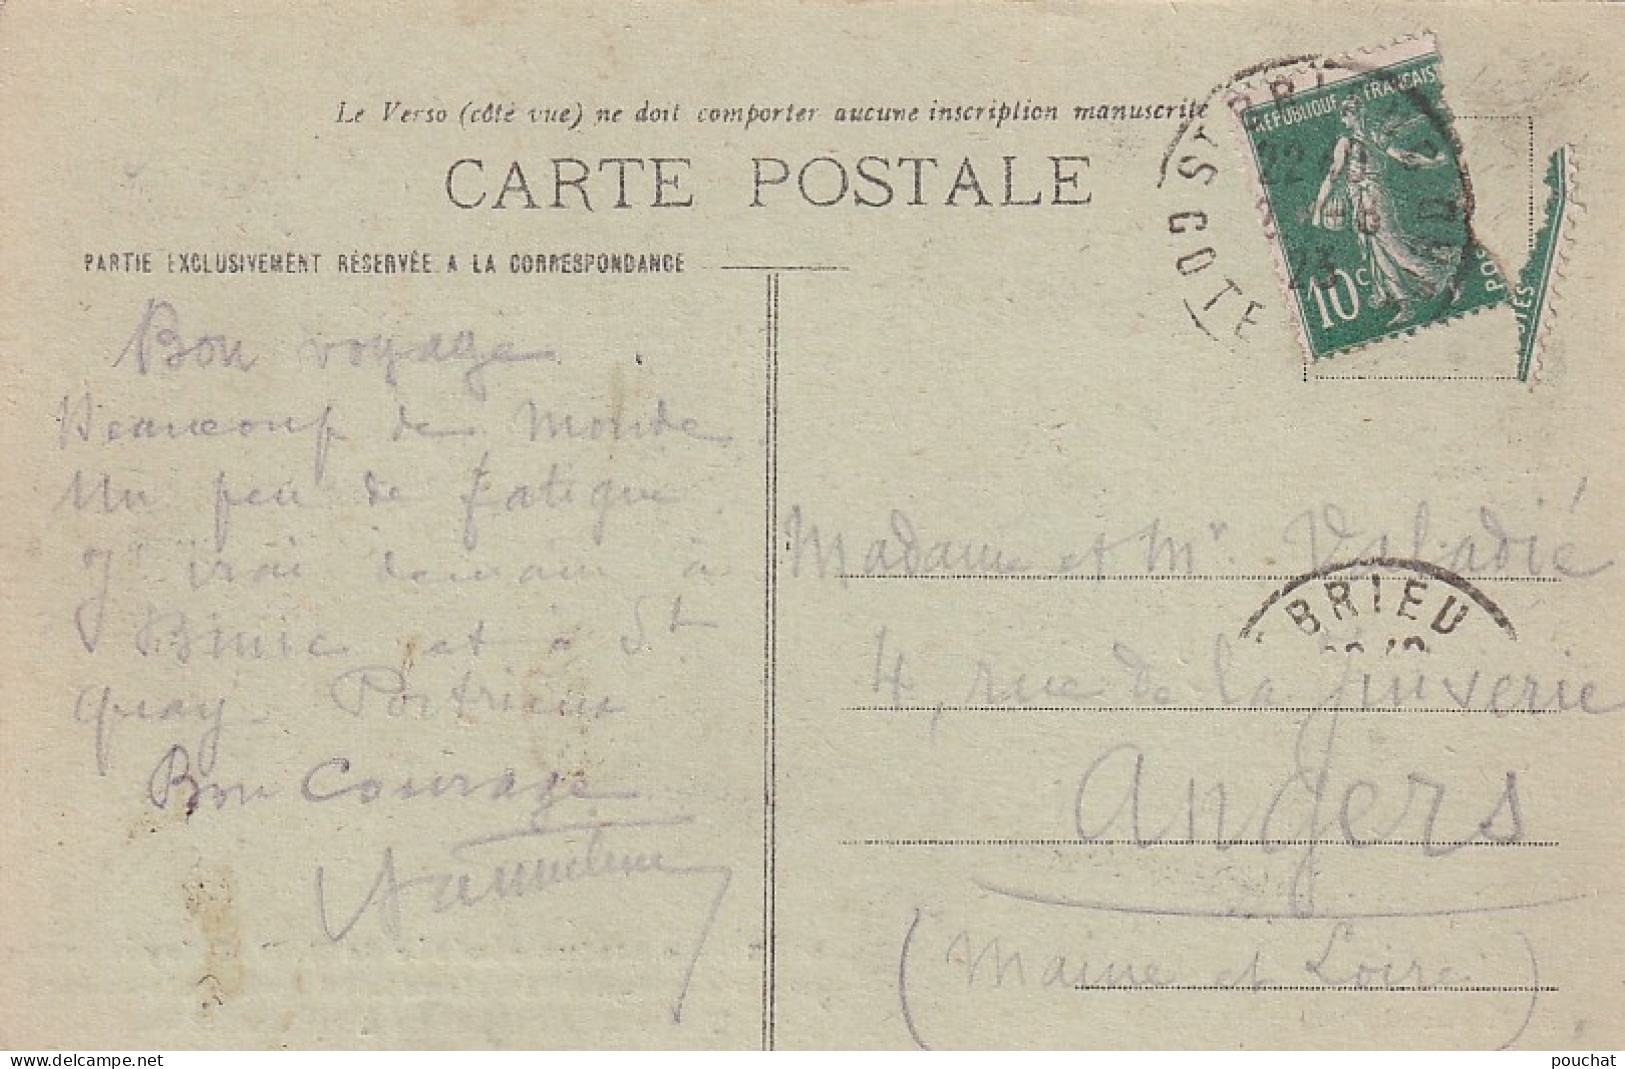 Le Verso (côté vue) ne doit comporter aucune inscription manuscrite
CARTE POSTALE
PARTIE EXCLUSIVEMENT RÉSERVÉE A LA CORRESPONDANCE
Bon voyage
Beaucoup de monde
Un peu de fatigue
J'irai demain à
Binic et à St
Quay Portrieux
Bon Courage
RÉPUBLIQUE FRANÇAISE
10c
POSTES
ST BRIEUC
COTE
Madame et Mr Valadié
BRIEU
4, rue de la Juiverie
Angers
(Maine et Loire)
www.delcampe.net
pouchat